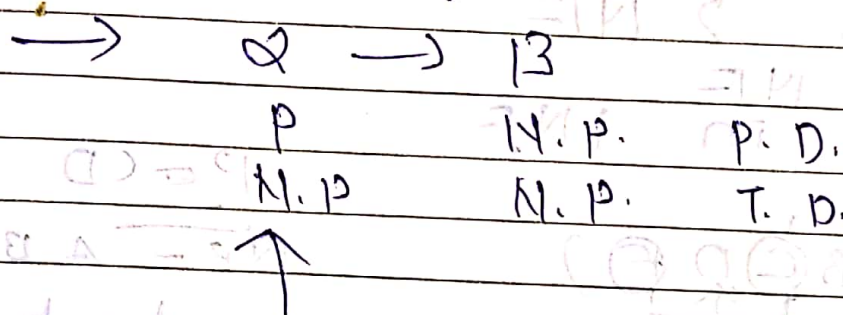 → α → B
P N.P. P.D.
N.P N.P. T.D.
↑